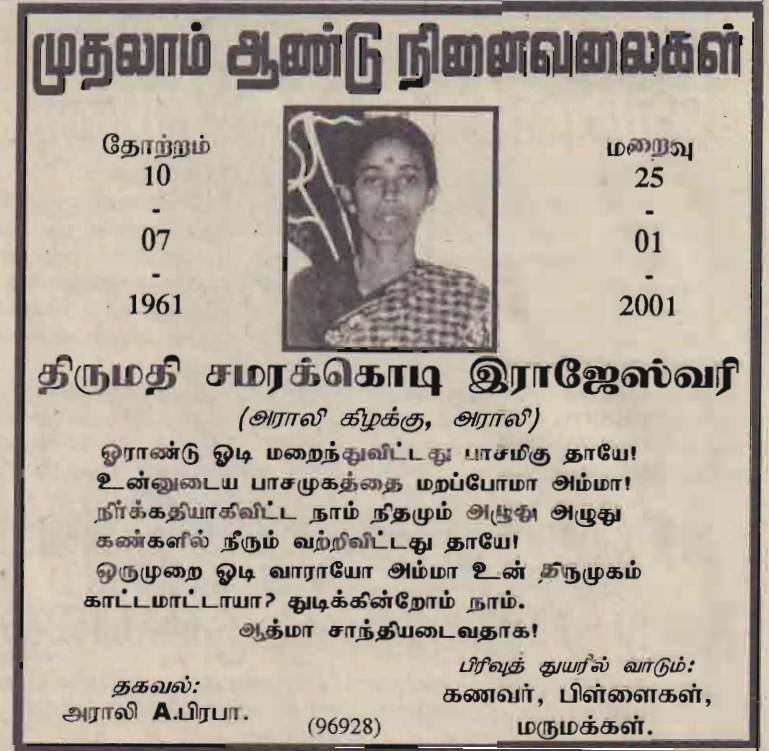 முதலாம் ஆண்டு நினைவலைகள்
தோற்றம்
10
-
07
-
1961
மறைவு
25
-
01
-
2001
திருமதி சமரக்கொடி இராஜேஸ்வரி
(அராலி கிழக்கு, அராலி)
ஓராண்டு ஓடி மறைந்துவிட்டது பாசமிகு தாயே!
உன்னுடைய பாசமுகத்தை மறப்போமா அம்மா!
நிர்க்கதியாகிவிட்ட நாம் நிதமும் அழுது அழுது
கண்களில் நீரும் வற்றிவிட்டது தாயே!
ஒருமுறை ஓடி வாராயோ அம்மா உன் திருமுகம்
காட்டமாட்டாயா? துடிக்கின்றோம் நாம்.
ஆத்மா சாந்தியடைவதாக!
தகவல்:
அராலி A.பிரபா.
(96928)
பிரிவுத் துயரில் வாடும்:
கணவர், பிள்ளைகள்,
மருமக்கள்.